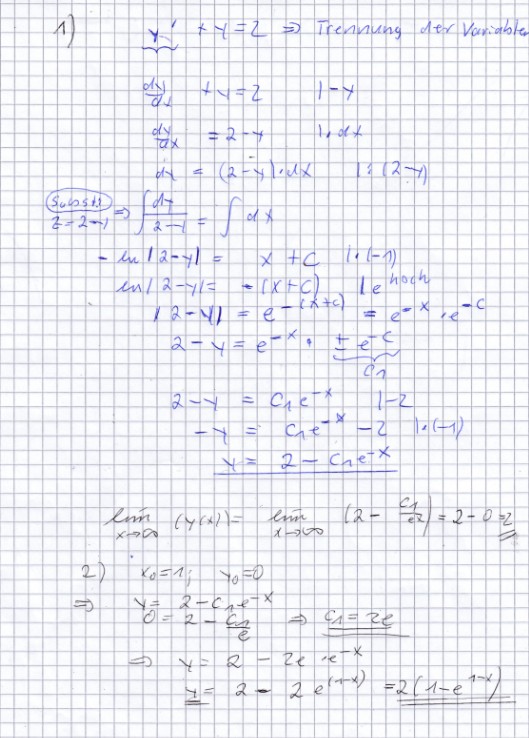 1) y' + y = 2 => Trennung der Variablen
dy/dx + y = 2 | - y
dy/dx = 2 - y | · dx
dy = (2 - y) · dx | : (2 - y)
Subst: z = 2 - y => ∫ dy/(2 - y) = ∫ dx
- ln |2 - y| = x + C | · (-1)
ln |2 - y| = - (x + C) | e hoch
|2 - y| = e^-(x + c) = e^-x · e^-c
2 - y = e^-x · ± e^-c
C1
2 - y = C1 e^-x | - 2
- y = C1 e^-x - 2 | · (-1)
y = 2 - C1 e^-x
lim x→∞ (y(x)) = lim x→∞ (2 - C1/e^x) = 2 - 0 = 2
2) x0 = 1; y0 = 0
=> y = 2 - C1 e^-x
0 = 2 - C1/e => C1 = 2e
=> y = 2 - 2e · e^-x
y = 2 - 2 e^(1-x) = 2(1 - e^1-x)